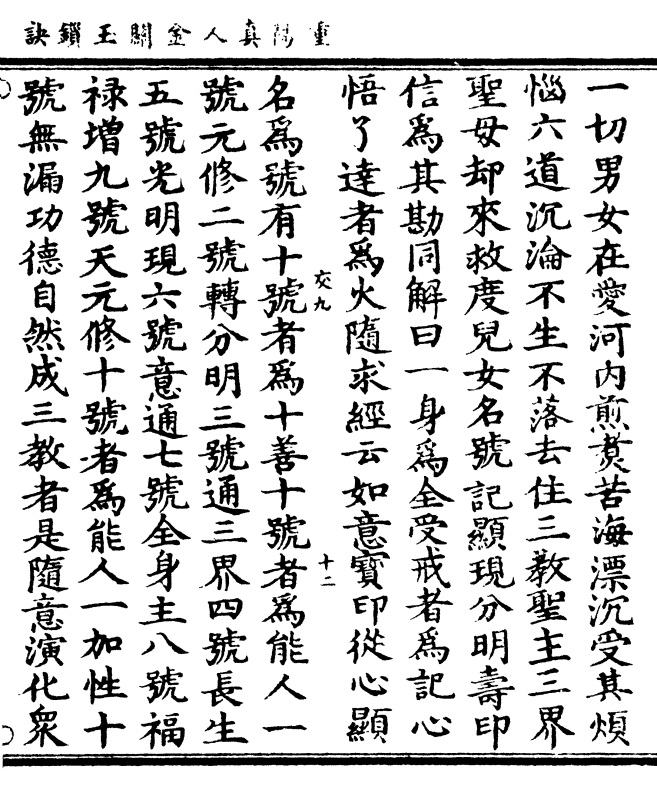 重陽真人金關玉鎖訣
一切男女在愛河内煎煑苦海漂沉受其煩
惱六道沉淪不生不落去住三教聖主三界
聖母却來救度兒女名號記顯現分明壽印
信爲其勘同解曰一身爲全受戒者爲記心
悟了達者爲火隨求經云如意寶印從心顯
交九
十二
名爲號有十號者爲十善十號者爲能人一
號元修二號轉分明三號通三界四號長生
五號光明現六號意通七號全身主八號福
禄增九號天元修十號者爲能人一加性十
號無漏功德自然成三教者是隨意演化衆